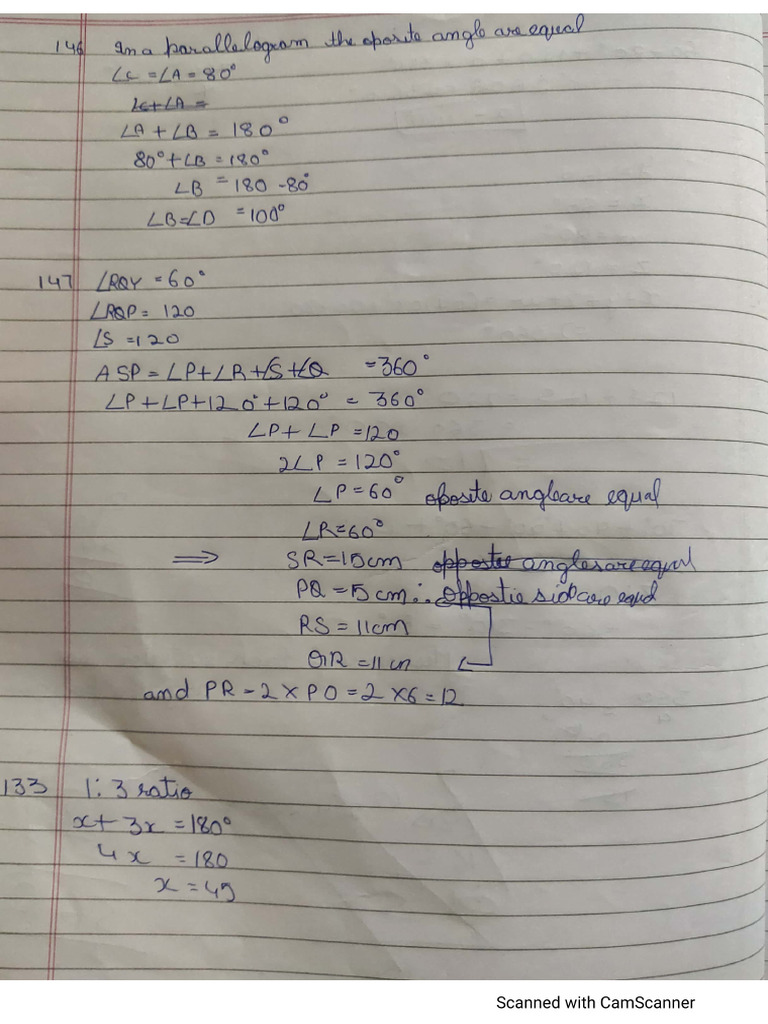 146 In a parallelogram the oposite angle are equal
∠C = ∠A = 80°
∠C + ∠A =
∠A + ∠B = 180°
80° + ∠B = 180°
∠B = 180 - 80°
∠B = ∠D = 100°
147 ∠RQY = 60°
∠RQP = 120
∠S = 120
ASP = ∠P + ∠R + ∠S + ∠Q = 360°
∠P + ∠P + 120° + 120° = 360°
∠P + ∠P = 120
2∠P = 120°
∠P = 60° oposite angle are equal
∠R = 60°
⇒ SR = 15cm oppostee angles are equal
PQ = 15cm ∴ oppostie side are equal
RS = 11cm
QR = 11cm
and PR = 2 × PO = 2 × 6 = 12
133 1:3 ratio
x + 3x = 180°
4x = 180
x = 45
Scanned with CamScanner